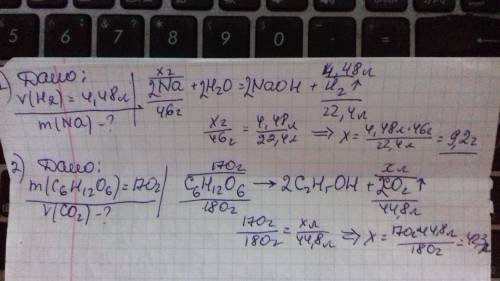 5 6 7 8 9 0 - =
1) Дано:
V(H₂) = 4,48л
m(Na) - ?
xг 4,48л
2Na + 2H₂O = 2NaOH + H₂↑
46г 22,4л
xг/46г = 4,48л/22,4л ⇒ x = 4,48л·46г/22,4л = 9,2г
2) Дано:
m(C₆H₁₂O₆) = 170г
V(CO₂) - ?
170г xл
C₆H₁₂O₆ → 2C₂H₅OH + 2CO₂↑
180г 44,8л
170г/180г = xл/44,8л ⇒ x = 170г·44,8л/180г =